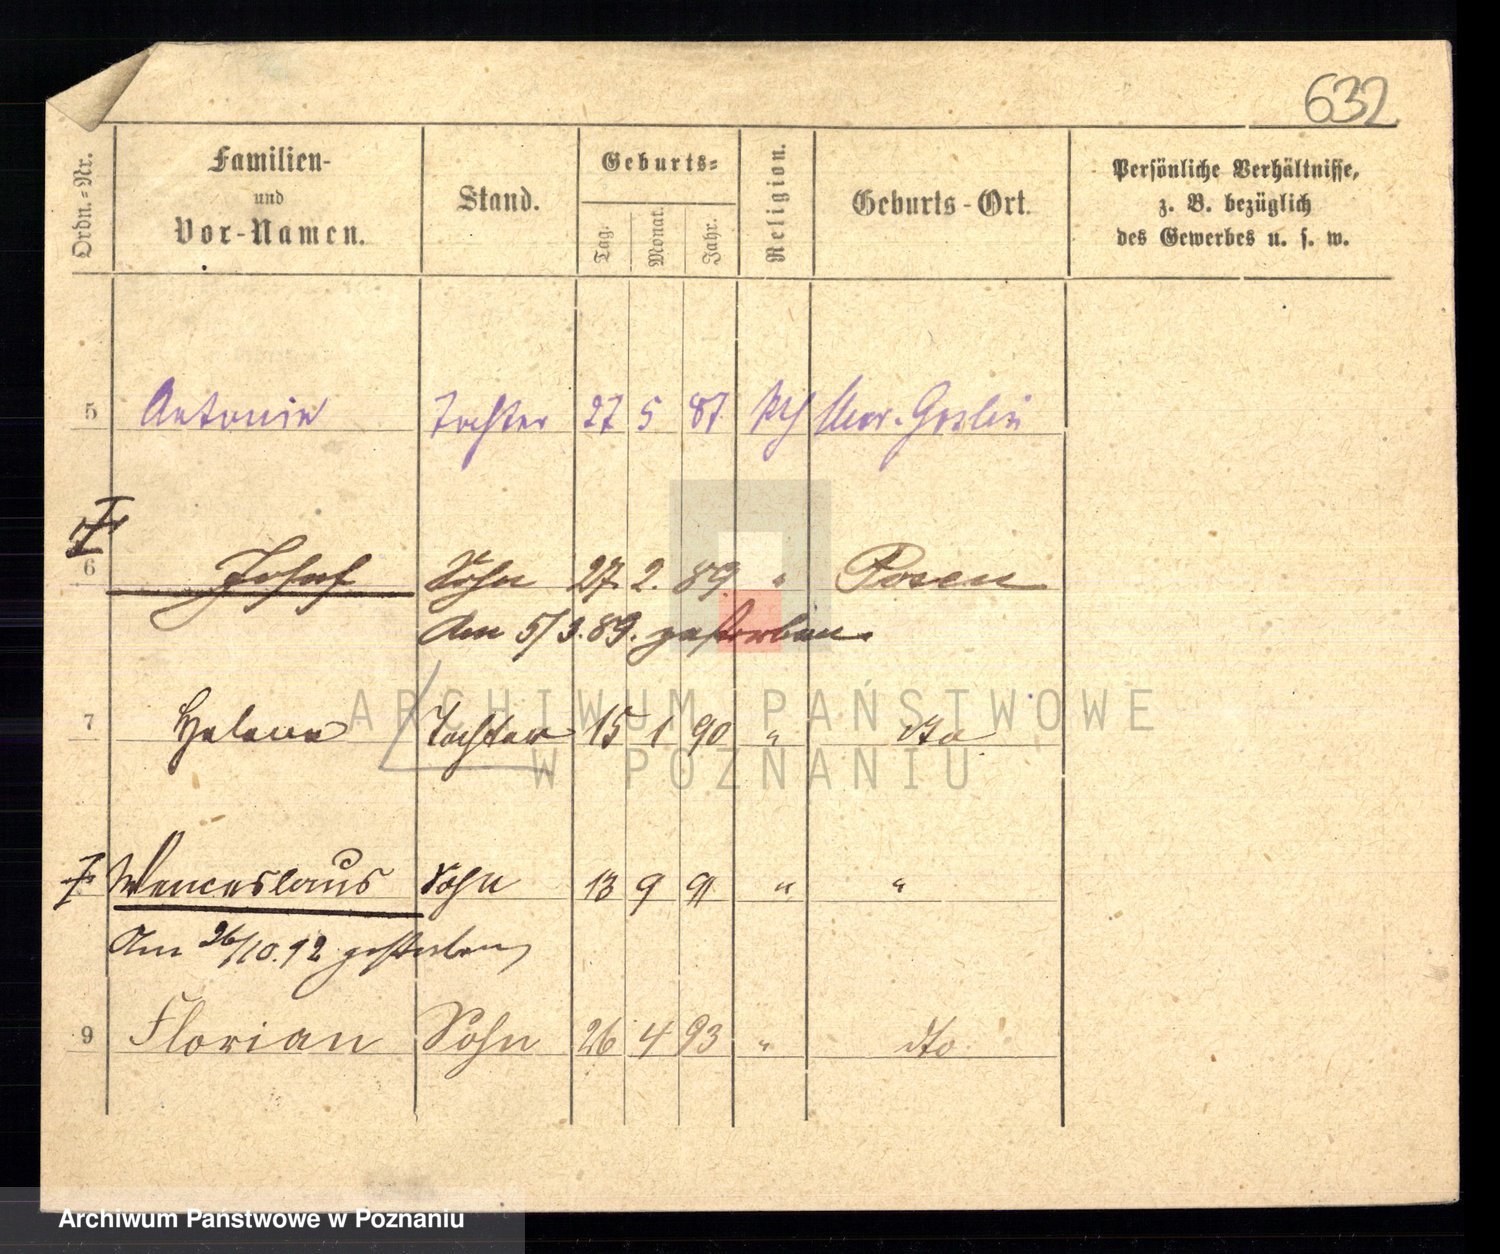 632
Ordn.-Nr.
Familien-
und
Vor-Namen.
Stand.
Geburts-
Tag.
Monat.
Jahr.
Religion.
Geburts-Ort.
Persönliche Verhältnisse,
z. B. bezüglich
des Gewerbes u. s. w.
5 Antonie Tochter 27 5 87 kth Mur. Goslin
6 Josef Sohn 27. 2. 89. " Posen
Am 5/3. 89. gestorben.
7 Helene Tochter 15 1 90 " dto
Wenceslaus Sohn 13 9 91 " "
Am 26/10. 92 gestorben
9 Florian Sohn 26 4 93 " dto
ARCHIWUM PAŃSTWOWE
W POZNANIU
Archiwum Państwowe w Poznaniu